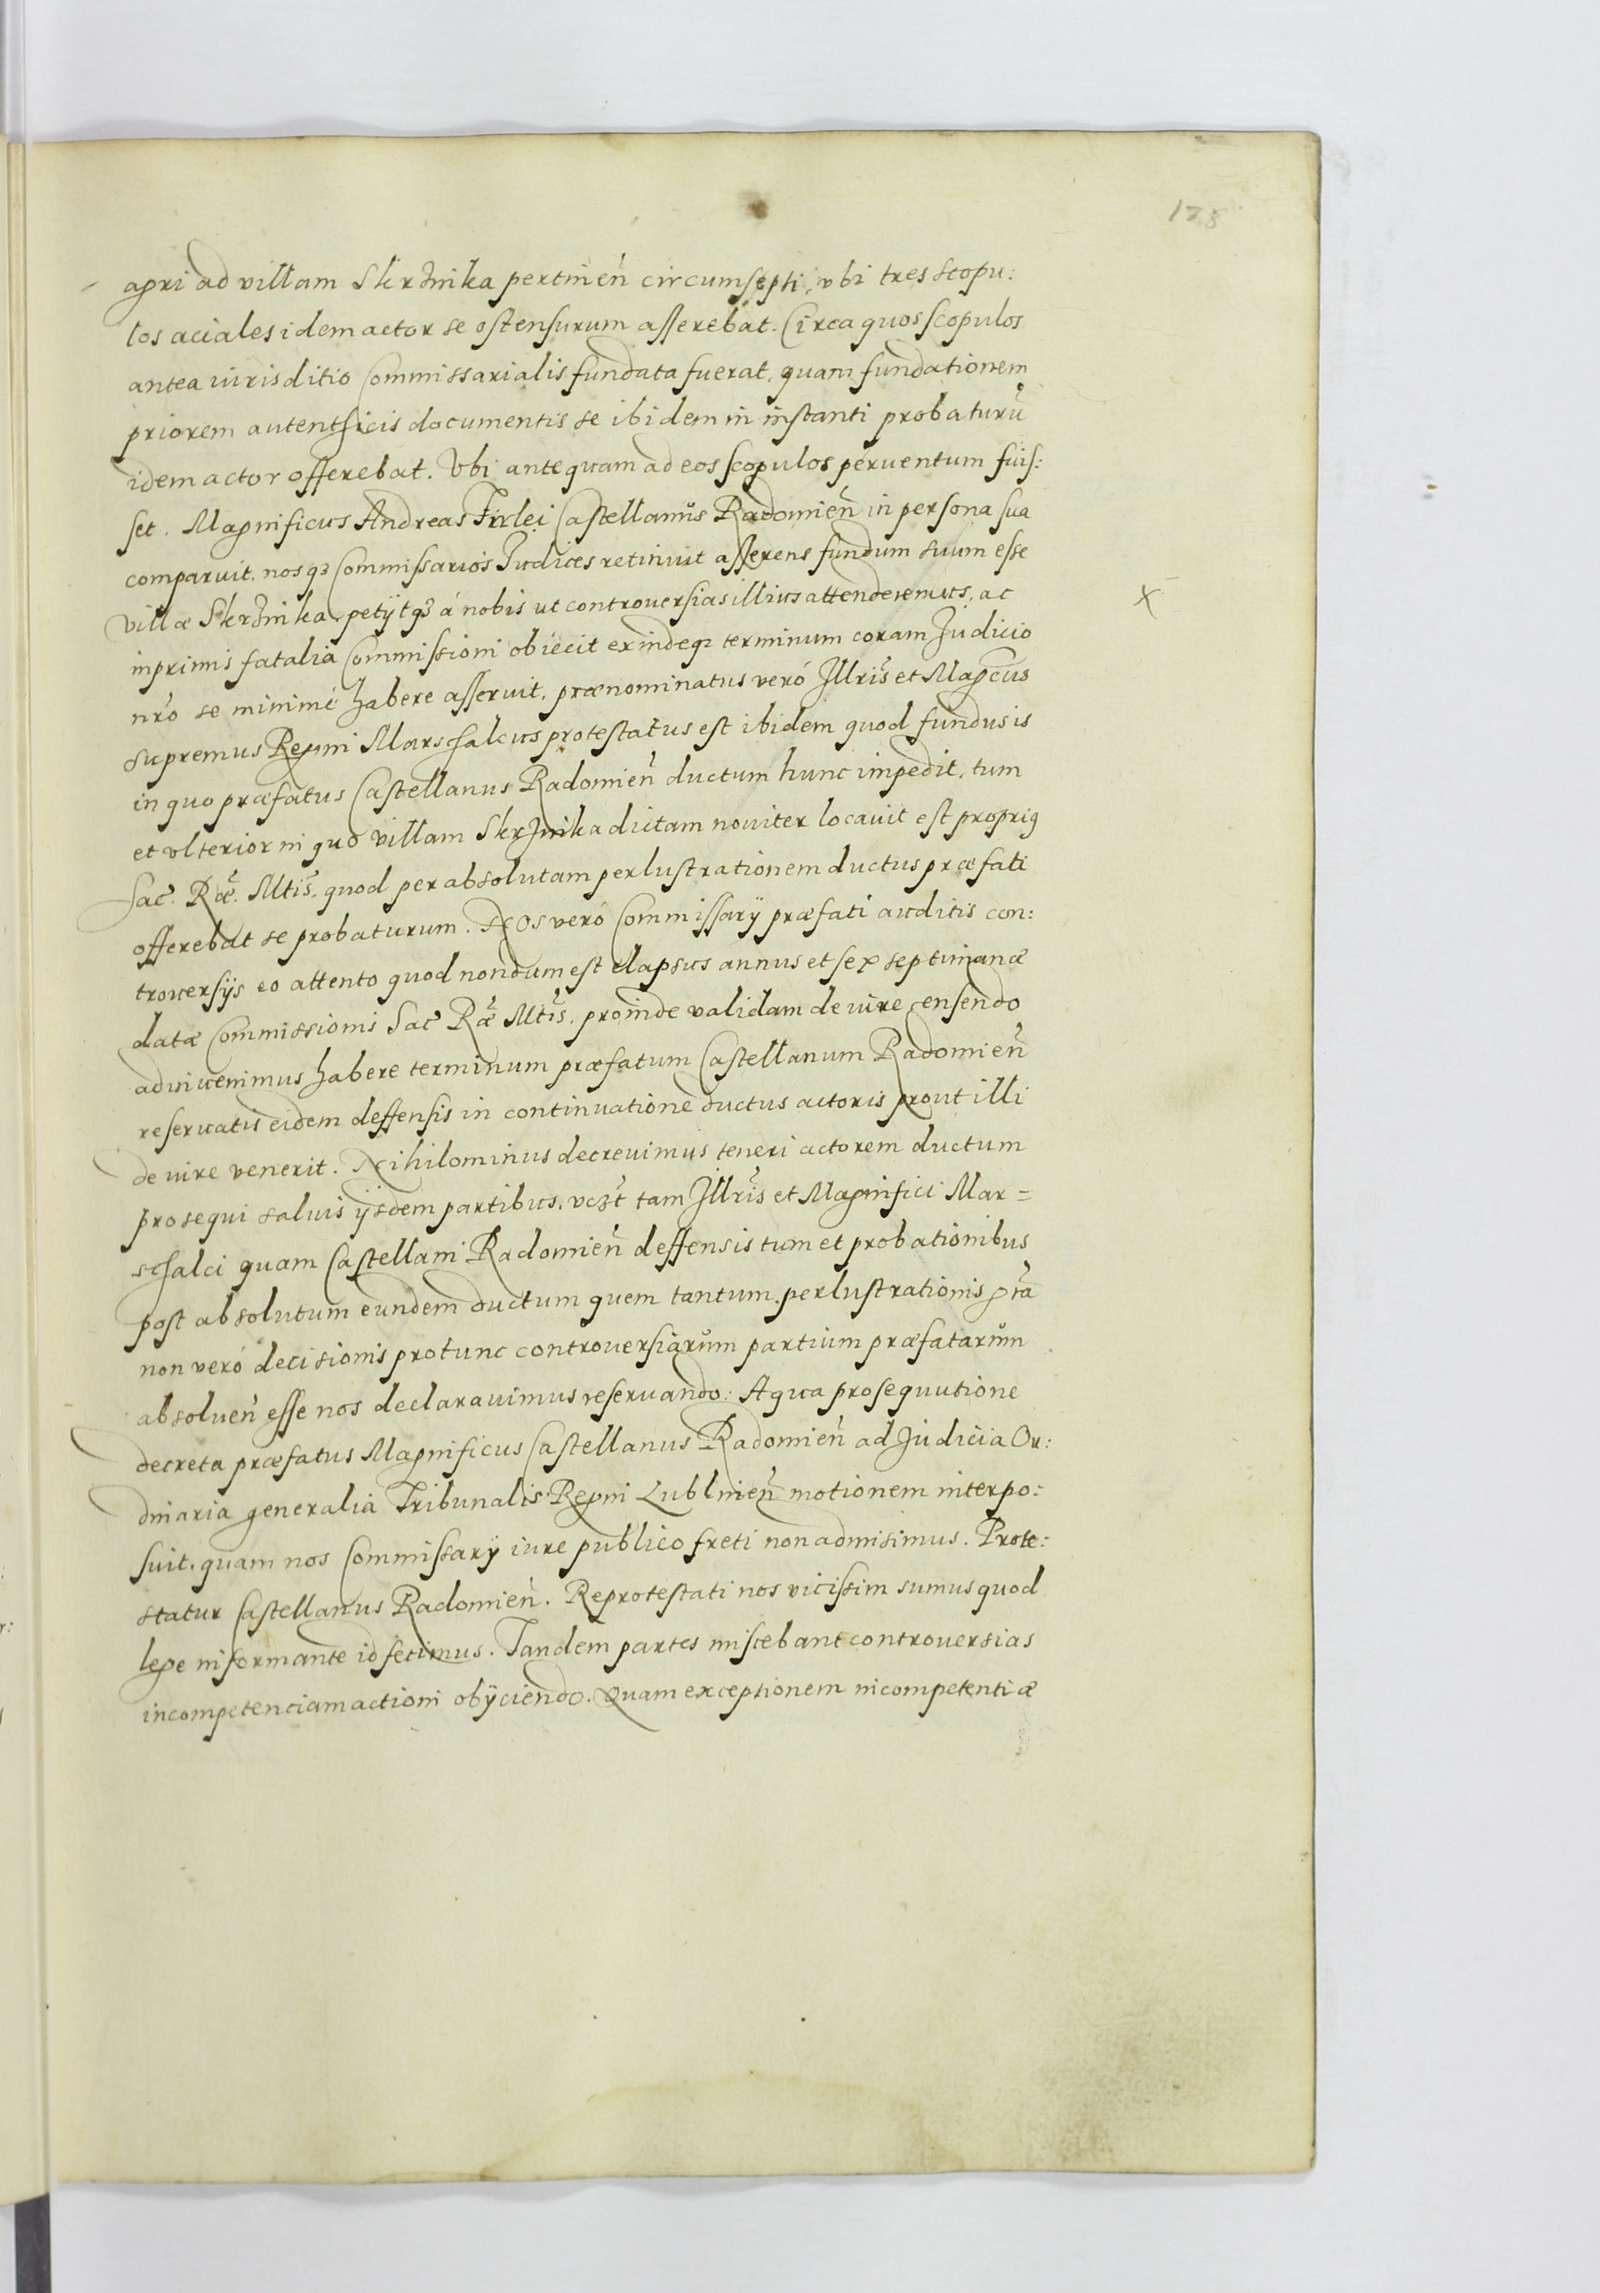 178
agri ad villam Skrzinika pertinen̄ circumsepti, vbi tres scopu:
los aciales idem actor se ostensurum asserebat. Circa quos scopulos
antea iurisditio Commissarialis fundata fuerat, quam fundationem
priorem autenthicis documentis se ibidem in instanti probaturū
idem actor offerebat. Vbi antequam ad eos scopulos peruentum fuis:
set. Magnificus Andreas Firlei Castellanus Radomien̄ in persona sua
comparuit. nosqȝ Commissarios Iudices retinuit asserens fundum suum esse
villæ Skrzinika, petÿtqȝ á nobis ut controuersias illius attenderemus, ac
inprimis fatalia Commissioni obiecit exindeqȝ terminum coram Iudicio
nr̄o se minimé habere asseruit. prænominatus veró Illrīs et Magcūs
supremus Regni Marschalcus protestatus est ibidem quod fundus is
in quo præfatus Castellanus Radomien̄ ductum hunc impedit, tum
et vlterior in quo villam Skrzinika dictam nouiter locauit est proprig
Sac̄. Rǣ. Mtīs. quod per absolutam perlustrationem ductus præfati
offerebat se probaturum. Nos veró Commissarÿ præfati auditis con:
trouersÿs eo attento quod nondum est elapsus annus et sex septimanæ
datæ Commissionis Sac̄ Rǣ Mtīs. proinde validam de iure censendo
adinuenimus habere terminum præfatum Castellanum Radomien̄
reseruatis eidem deffensis in continuatione ductus actoris prout illi
de iure venerit. Nihilominus decreuimus teneri actorem ductum
prosequi saluis ÿsdem partibus, vczt̄ tam Illrīs et Magnifici Mar=
schalci quam Castellani Radomien̄ deffensis tum et probationibus
post absolutum eundem ductum quem tantum perlustrationis grā
non veró decisionis protunc controuersiarum partium præfatarum
absoluen̄ esse nos declarauimus reseruando: A qua prosequutione
decreta præfatus Magnificus Castellanus Radomien̄ ad Iudicia Or:
dinaria generalia Tribunalis Regni Lublinen̄ motionem interpo:
suit. quam nos Commissarÿ iure publico freti non admisimus. Prote:
statur Castellanus Radomien̄. Reprotestati nos vicissim sumus quod
lege informante id fecimus. Tandem partes miscebant controuersias
incompetenciam actioni obÿciendo. Quam exceptionem incompetentiæ